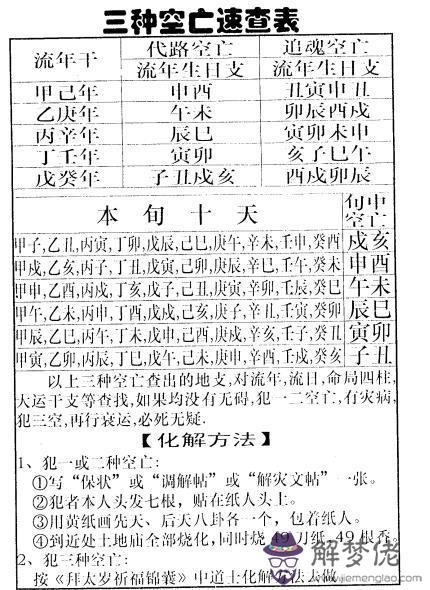 三种空亡速查表
流年干 代路空亡 追魂空亡
流年生日支 流年生日支
甲己年 申酉 丑寅申丑
乙庚年 午未 卯辰酉戍
丙辛年 辰巳 寅卯未申
丁壬年 寅卯 亥子巳午
戊癸年 子丑戍亥 酉戍卯辰
本旬十天 旬中空亡
甲子,乙丑,丙寅,丁卯,戊辰,己巳,庚午,辛未,壬申,癸酉 戍亥
甲戍,乙亥,丙子,丁丑,戊寅,己卯,庚辰,辛巳,壬午,癸未 申酉
甲申,乙酉,丙戍,丁亥,戊子,己丑,庚寅,辛卯,壬辰,癸巳 午未
甲午,乙未,丙申,丁酉,戊戍,己亥,庚子,辛丑,壬寅,癸卯 辰巳
甲辰,乙巳,丙午,丁未,戊申,己酉,庚戍,辛亥,壬子,癸丑 寅卯
甲寅,乙卯,丙辰,丁巳,戊午,己未,庚申,辛酉,壬戍,癸亥 子丑
以上三种空亡查出的地支,对流年,流日,命局四柱,
大运干支等查找,如果均没有无碍,犯一二空亡,有灾病,
犯三空,再行衰运,必死无疑.
【化解方法】
1、犯一或二种空亡:
①写“保状”或“调解帖”或“解灾文帖”一张。
②犯者本人头发七根,贴在纸人头上。
③用黄纸画先天、后天八卦各一个,包着纸人。
④到近处土地庙全部烧化,同时烧49刀纸,49根香。
2、犯三种空亡:
按《拜太岁祈福锦囊》中道士化解方法上做
解梦佬
www.jiemenglao.com